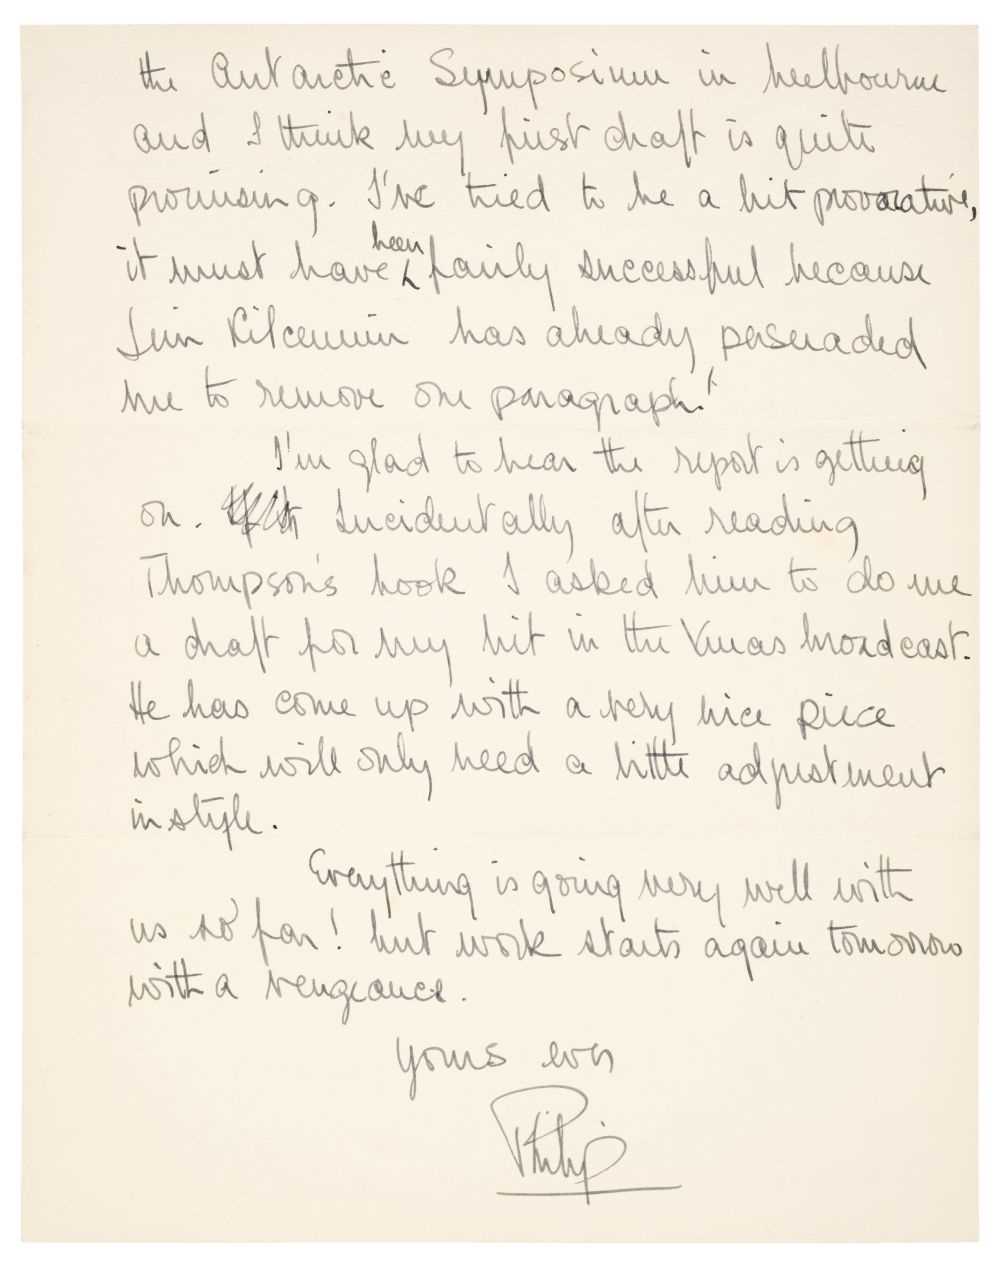 the Antarctic Symposium in Melbourne
and I think my first draft is quite
promising. I've tried to be a bit provocative,
it must have been fairly successful because
Jim has already persuaded
me to remove one paragraph!
I'm glad to hear the report is getting
on. Incidentally after reading
Thompson's book I asked him to do me
a draft for my bit in the Xmas broadcast.
He has come up with a very nice piece
which will only need a little adjustment
in style.
Everything is going very well with
us so far! but work starts again tomorrow
with a vengeance.
Yours ever
Philip